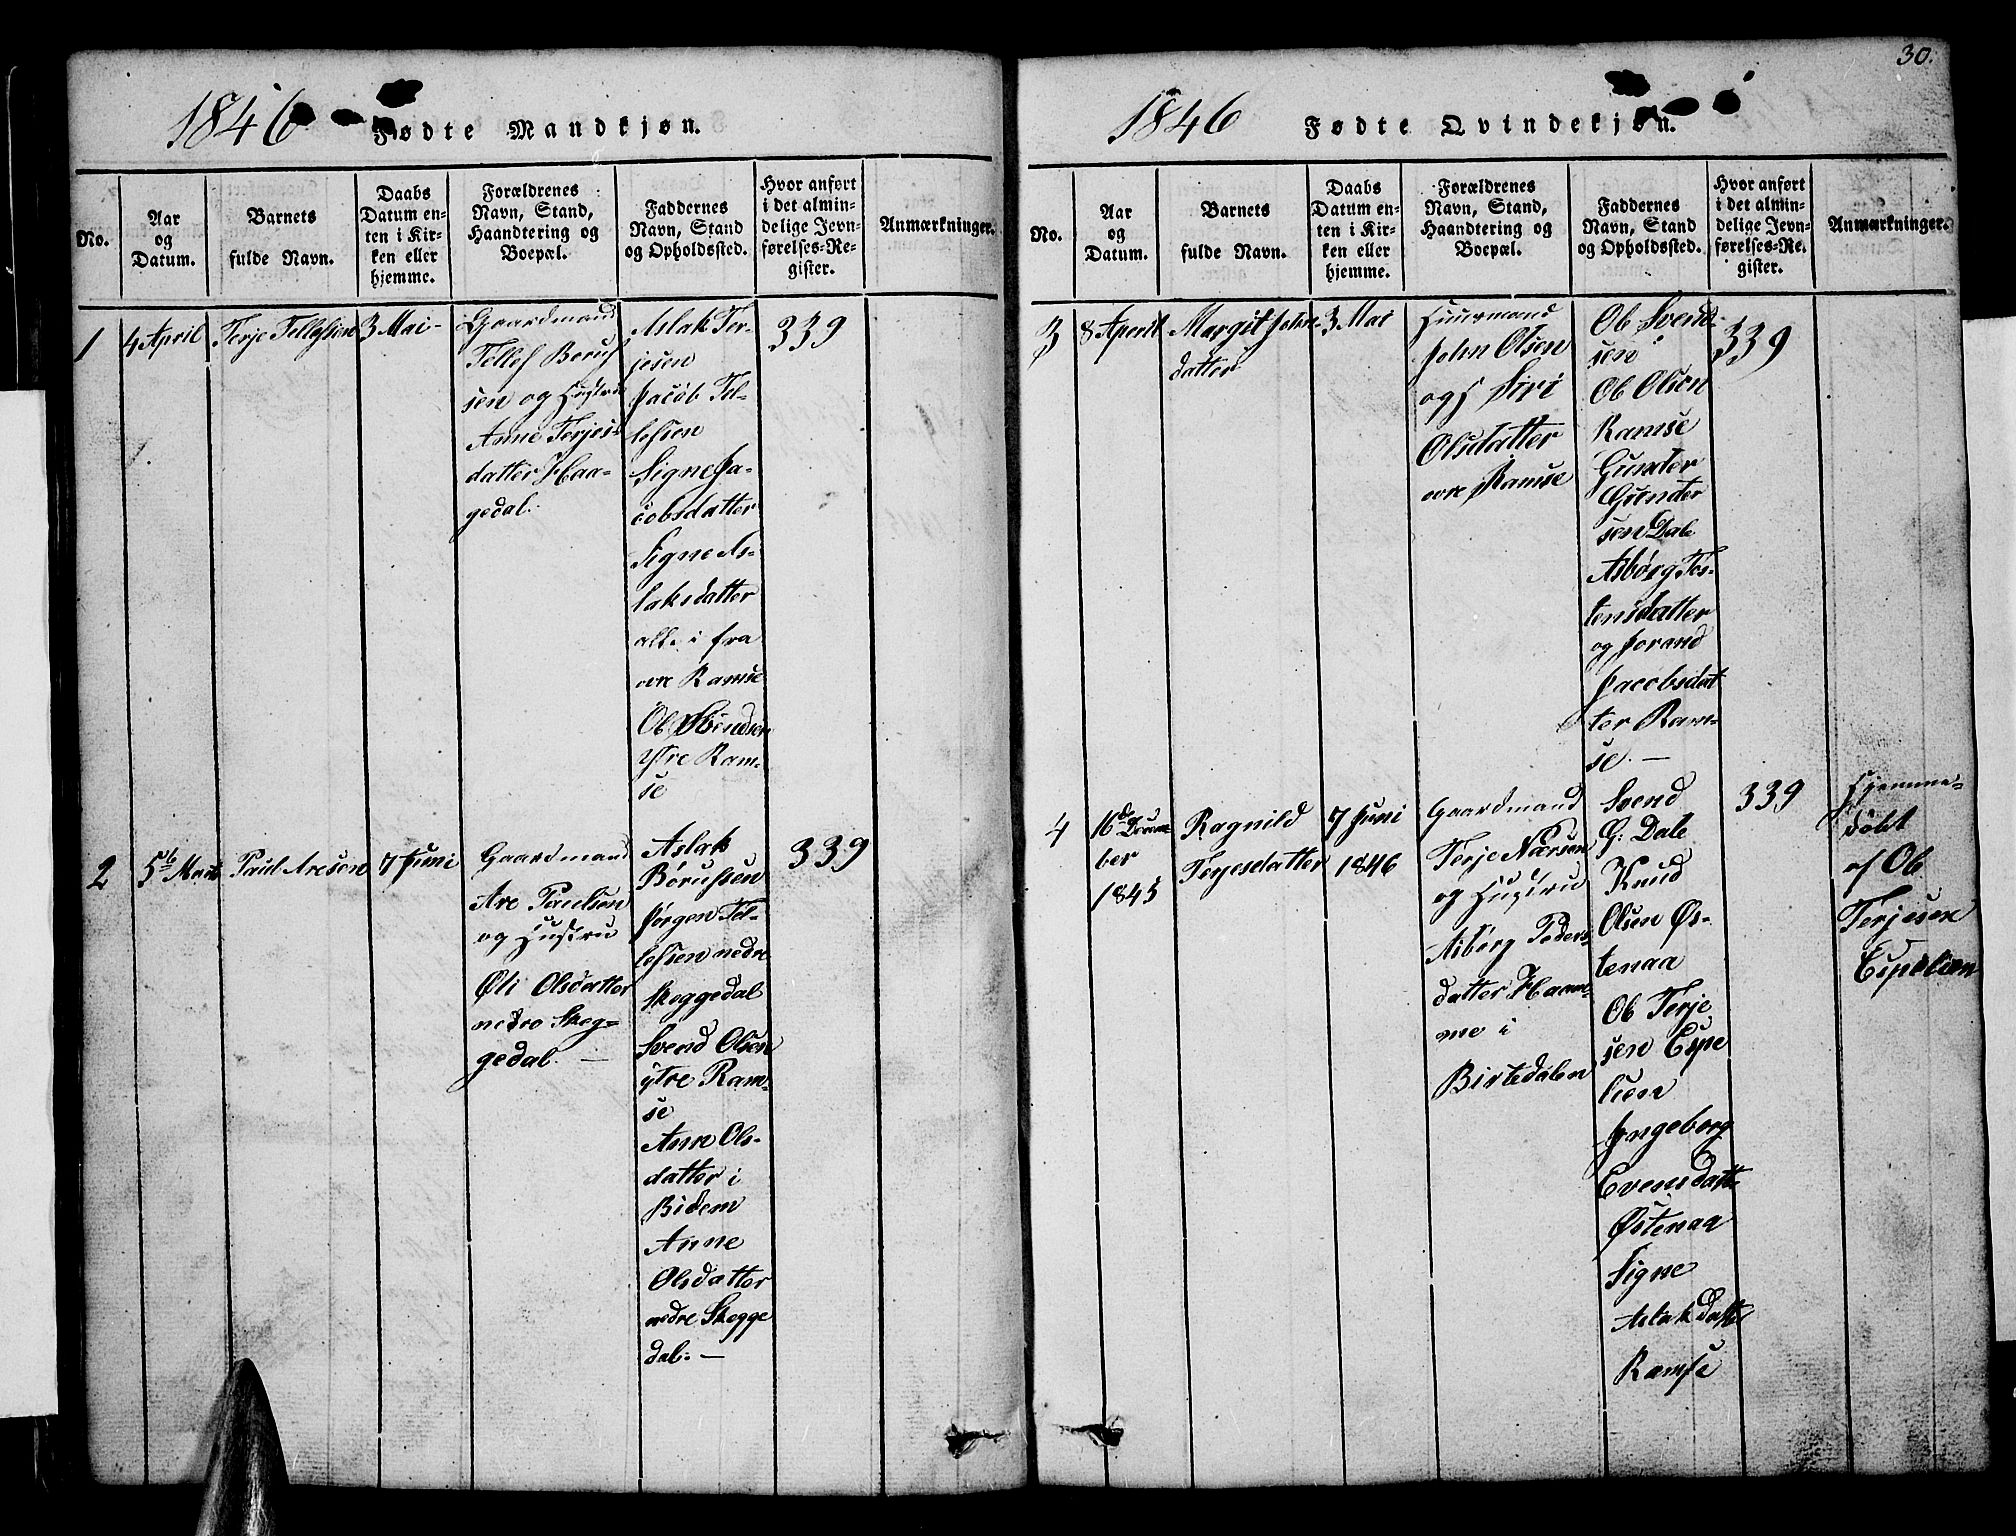 1846 Fødte Mandkjøn.
No.
Aar
og
Datum.
Barnets
fulde Navn.
Daabs
Datum en-
ten i Kir-
ken eller
hjemme.
Forældrenes
Navn, Stand,
Haandtering og
Boepæl.
Faddernes
Navn, Stand
og Opholdssted.
Hvor anført
i det almin-
delige Jevn-
førelses-Re-
gister.
Anmærkninger.
1
4 April
Terje Tellefsen
3 Mai-
Gaardmand
Tellef Beruf
sen og Hustru
Anne Terjes-
datter Haa-
gedal.
Aslak Ter-
jesen
Jacob Tel-
lefsen
Signe Ja-
cobsdatter
Signe As-
laksdatter
alle i fra
ovre Ramse
Ob Svendsen
ytre Ram-
se
339
2
5te
Paul Aresen
7 Juni
Gaardmand
Are Paulsen
og Hustru
Øli Olsdatter
nedre Skeg-
gedal. —
Aslak
Børufsen
Jørgen Tel-
lefsen nedre
Skeggedal
Svend Olsen
ytre Ram-
se
Anne Ols-
datter i
Bidem
Anne
Olsdatter
nedre Skegge
dal. —
339
30.
1846 Fødte Qvindekjøn.
No.
Aar
og
Datum.
Barnets
fulde Navn.
Daabs
Datum en-
ten i Kir-
ken eller
hjemme.
Forældrenes
Navn, Stand,
Haandtering og
Boepæl.
Faddernes
Navn, Stand
og Opholdssted.
Hvor anført
i det almin-
delige Jevn-
førelses-Re-
gister.
Anmærkninger.
3
8 Aperil
Margit John-
datter
3 Mai
Huusmand
John Olsen
og H Siri
Olsdatter
ovre Ramse
Ob Svend-
sen
Ob Olsen
Ramse
Gunter
Gunder
sen Dale
Asbørg Tos-
tensdatter
og Jorand
Jacobsdat
ter Ram-
se. —
339
4
16de Decem
ber
1845
Ragnild
Terjesdatter
7 Juni
1846
Gaardmand
Terje Næsen
og Hustru
Asbørg Peders
datter Ham-
me i
Birtedalen
Svend
G: Dale
Knud
Olsen Øs-
tenaa
Ob Terje
sen Espe
lien
Jngeborg
Evensdatt
Østenaa
Signe
Aslakdatt
Ramse
339
Hjemme-
døbt
af Ob
Terjesen
Espelien